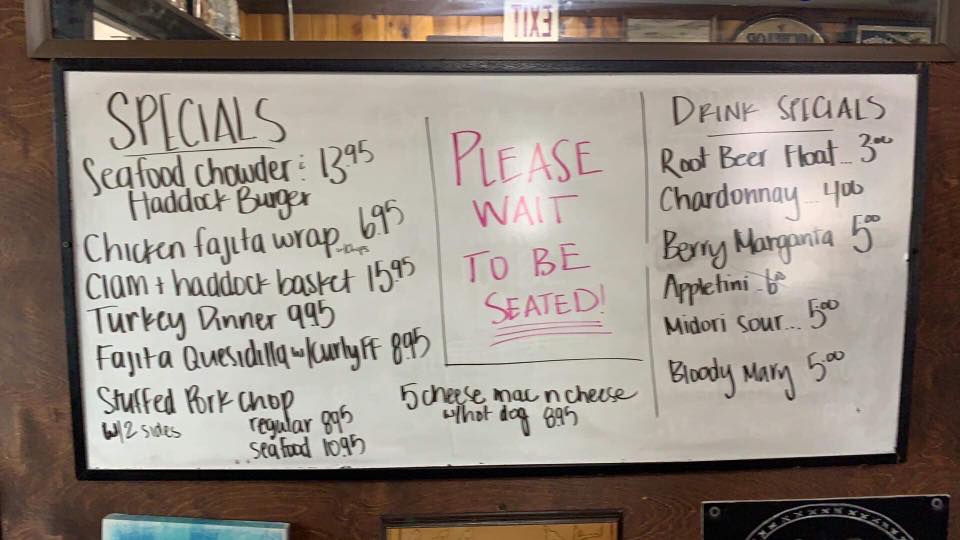 EXIT
SPECIALS
Seafood chowder : 13.95
Haddock Burger
Chicken fajita wrap 6.95
w/chips
Clam + haddock basket 15.95
Turkey Dinner 9.95
Fajita Quesidilla w/curly FF 8.95
Stuffed Pork chop
w/2 sides
regular 8.95
seafood 10.95
PLEASE
WAIT
TO BE
SEATED!
5 cheese mac n cheese
w/hot dog 8.95
DRINK SPECIALS
Root Beer Float... 3.00
Chardonnay... 4.00
Berry Margarita 5.00
Appletini -
Midori Sour... 5.00
Bloody Mary 5.00